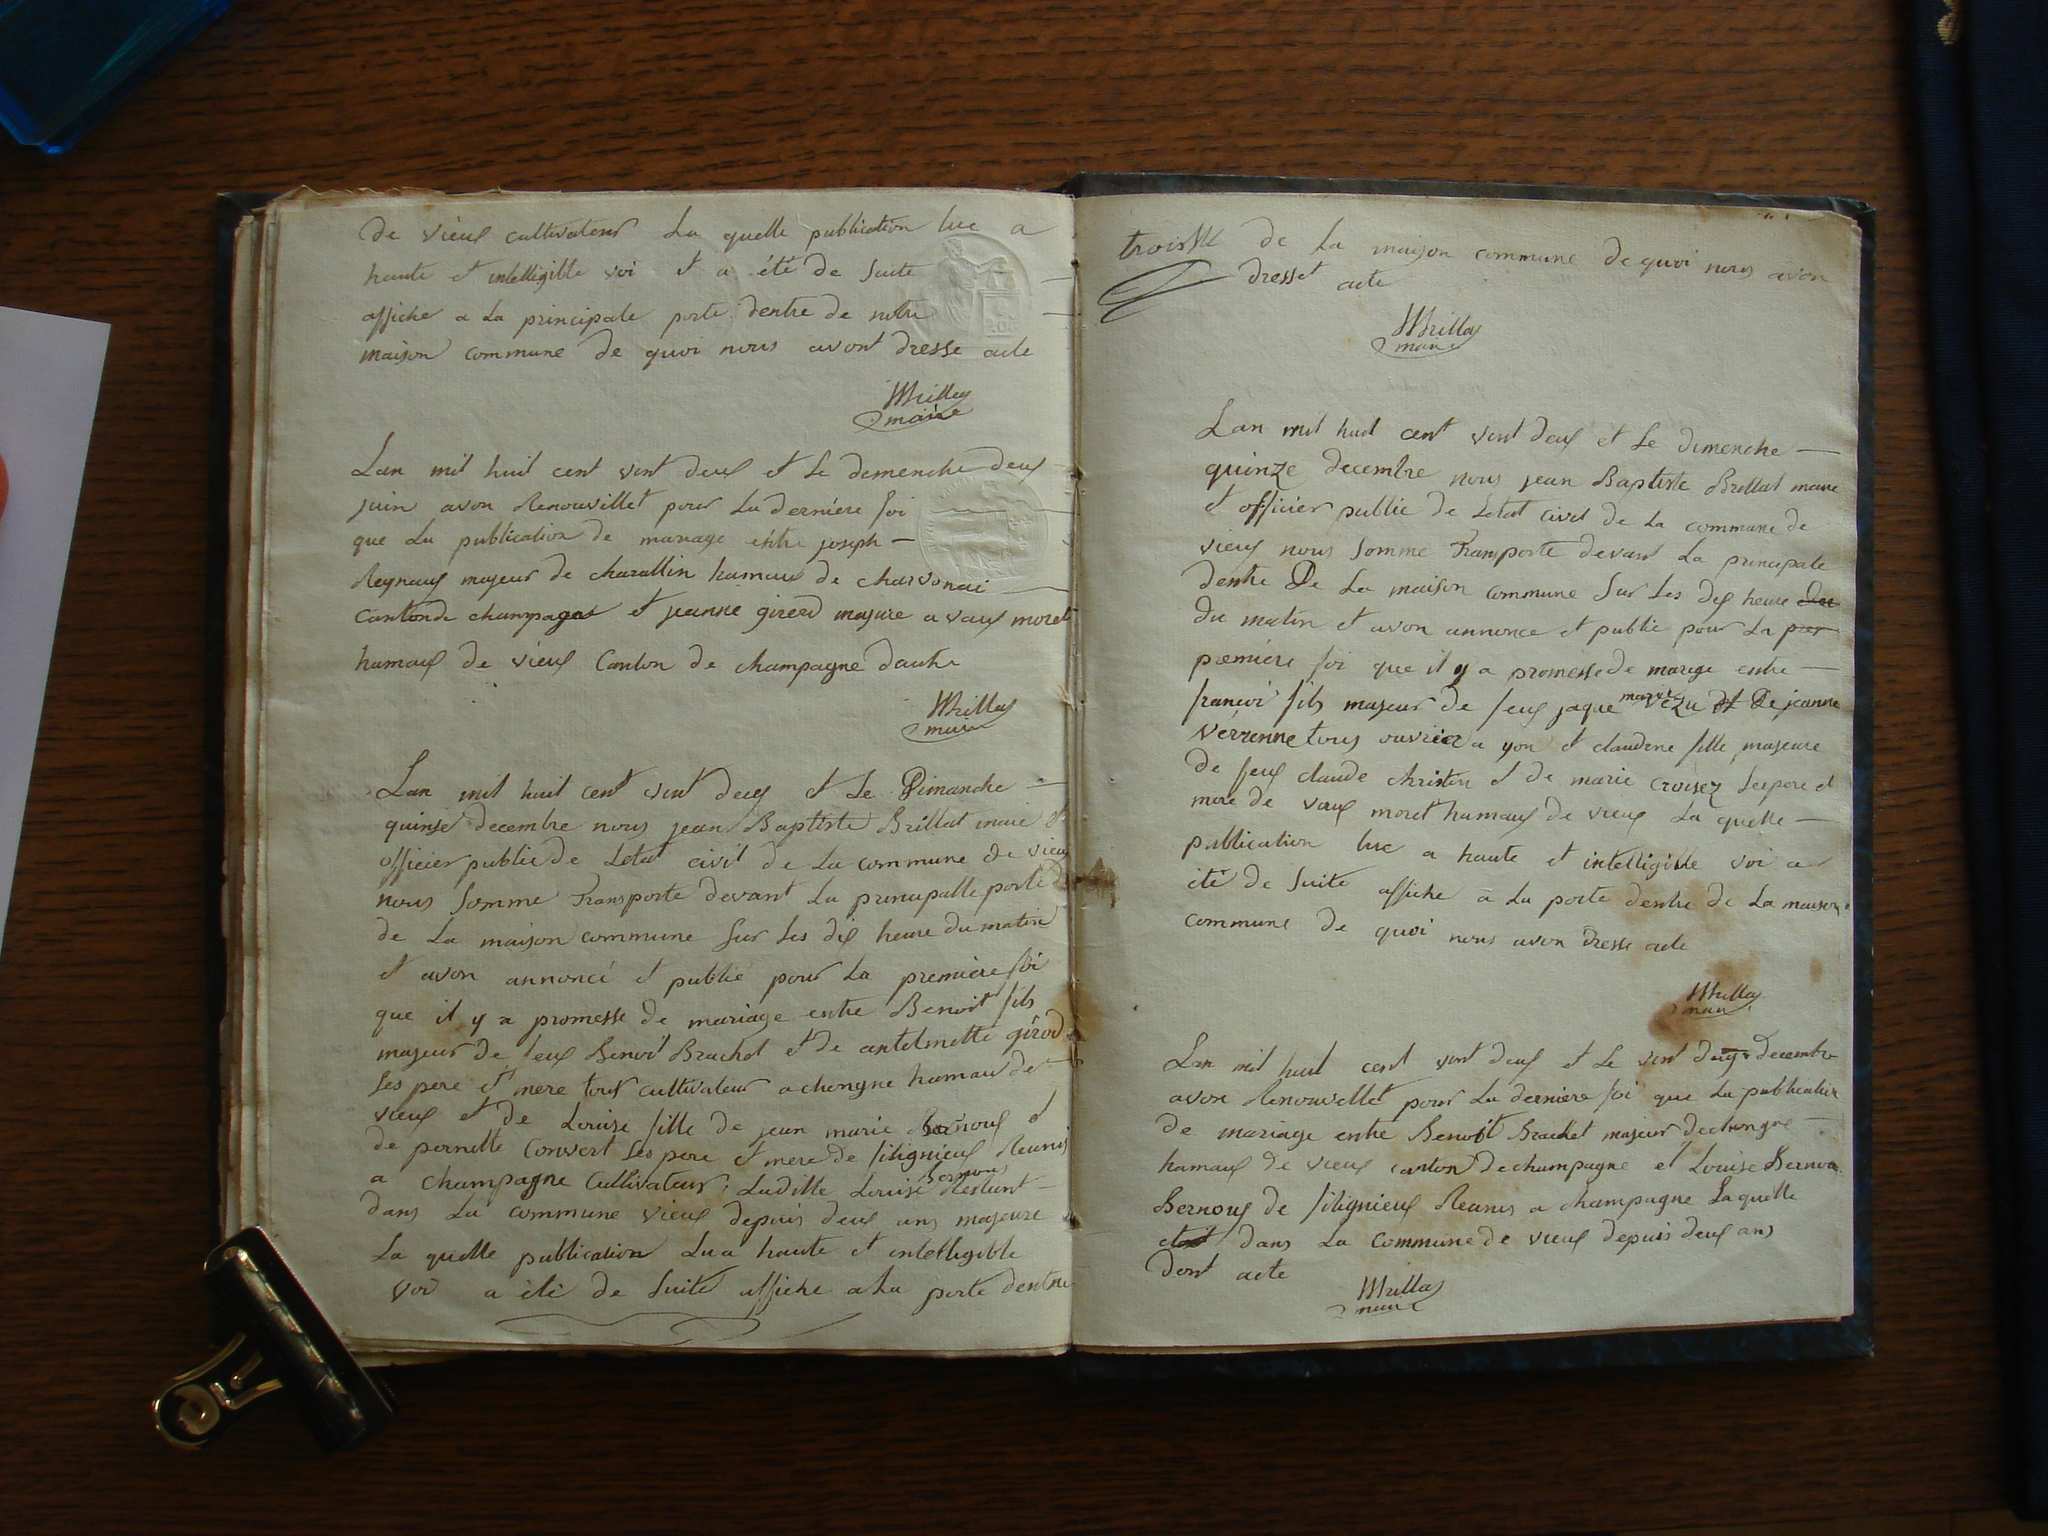 de vieux cultivateur La quelle publication lue a
haute et intelligible voi et a été de suite
affiche a La principale porte dentre de notre
maison commune de quoi nous avont dresse acte
maire
Lan mil huit cent vint deux et Le demenche deux
juin avon Renouvillet pour La derniére foi
que La publication de mariage entre joseph
Reynaux majeur de charallin hamaux de charvonai
Cantonde champagne et jeanne girerd majure a vaux moret
hamaux de vieux Canton de champagne dautre
maire
Lan mil huit cent vint deux et Le Dimanche
quinse decembre nous jean Baptiste Brillat maire et
officier public de Letat civil de La commune de vieux
nous somme Transporte devant La principalle porte d
de La maison commune sur Les dix heure du matin
et avon annoncé et publié pour La premiére foi
que il y a promesse de mariage entre Benoit fils
majeur de feux Benoit Brachet et de antelmette girod
ses pere et mere tous cultivateur a chongne hamau de
vieux et de Louise fille de jean marie Bernoux et
de pernette Convert ses pere et mere de silignieux Reunis
a champagne Cultivateur, Laditte Louise Bernoux Restant
dans La commune vieux depuis deux ans majeure
La quelle publication Lu a haute et intelligible
voi a été de suite affiche a La porte dentre
troisse de La maison commune de quoi nous avon
dresset acte
maire
Lan mil huit cent vint deux et Le dimenche
quinze decembre nous jean Baptiste Brillat maire
et officier public de Letat civil de La commune de
vieux nous somme Transporte devant La principale
dentre De La maison commune sur Les dix heure du
du matin et avon annonce et publie pour La pre
premiére foi que il y a promesse de marige entre
francoi fils majeur de feux jaque et De jeanne
verrenne tous ouvrier a yon et claudine fille majeure
de feux claude christin et de marie croisez ses pere et
mere de vaux moret hamaux de vieux La quelle
publication lue a haute et intelligible voi a
été de suite affiche a La porte dentre de La maison
commune de quoi nous avon dresse acte
maire
Lan mil huit cent vint deux et Le vint deux decembre
avon Renouvellet pour La derniere foi que La publication
de mariage entre Benoit Brachet majeur de chongne
hamaux de vieux canton de champagne et Louise Bernou
Bernoux de silignieux Reunis a champagne Laquelle
etait dans La Commune de vieux depuis deux ans
dont acte
maire